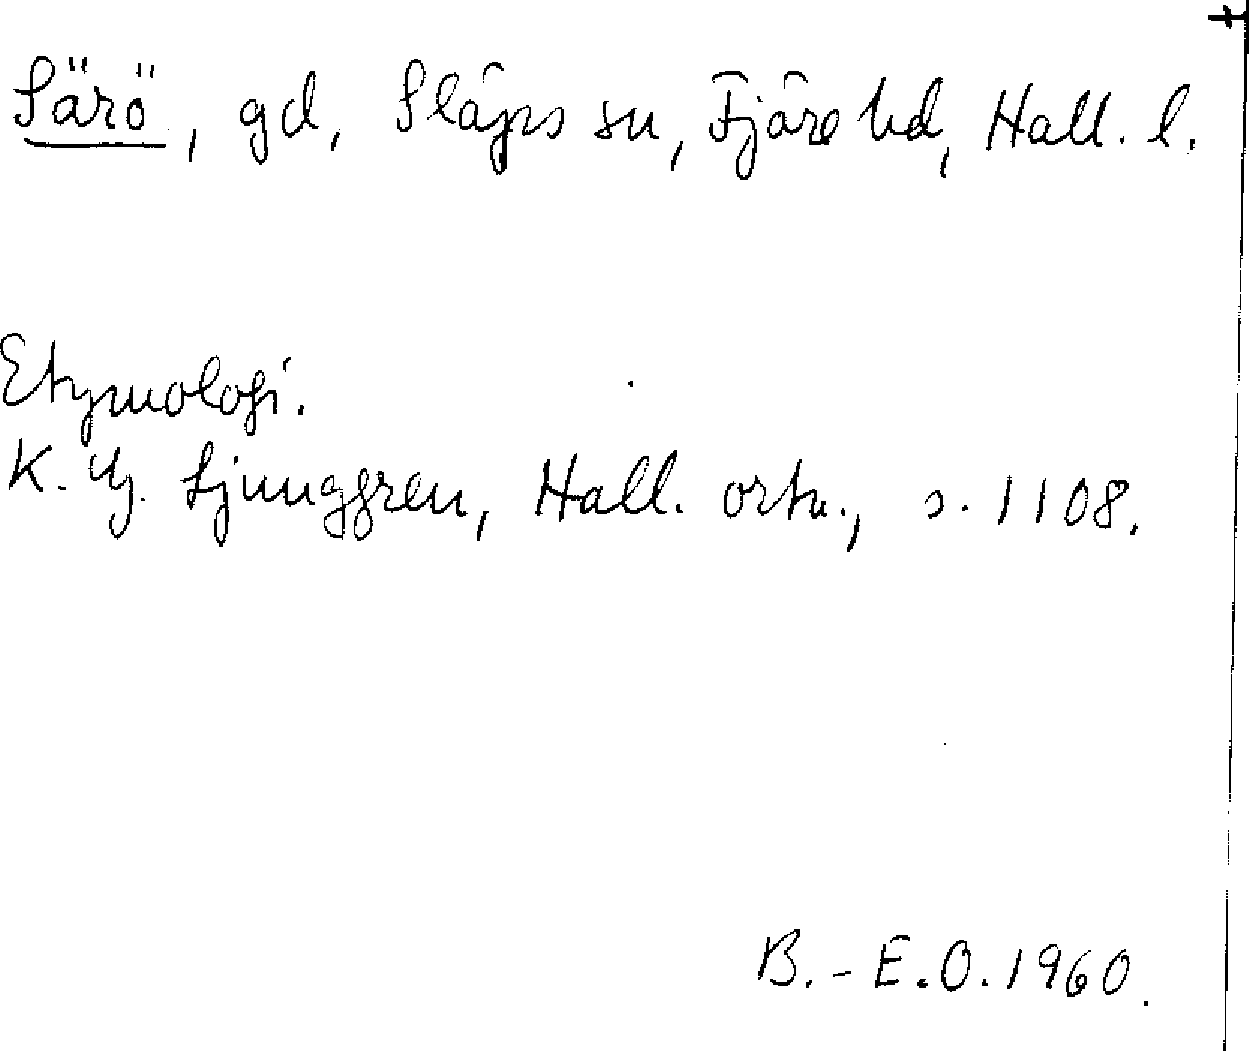 Särö, gd, Släps sn, Fjäre hd, Hall. l.
Etymologi.
K. G. Ljunggren, Hall. ortn., s. 1108.
B.-E.O. 1960.